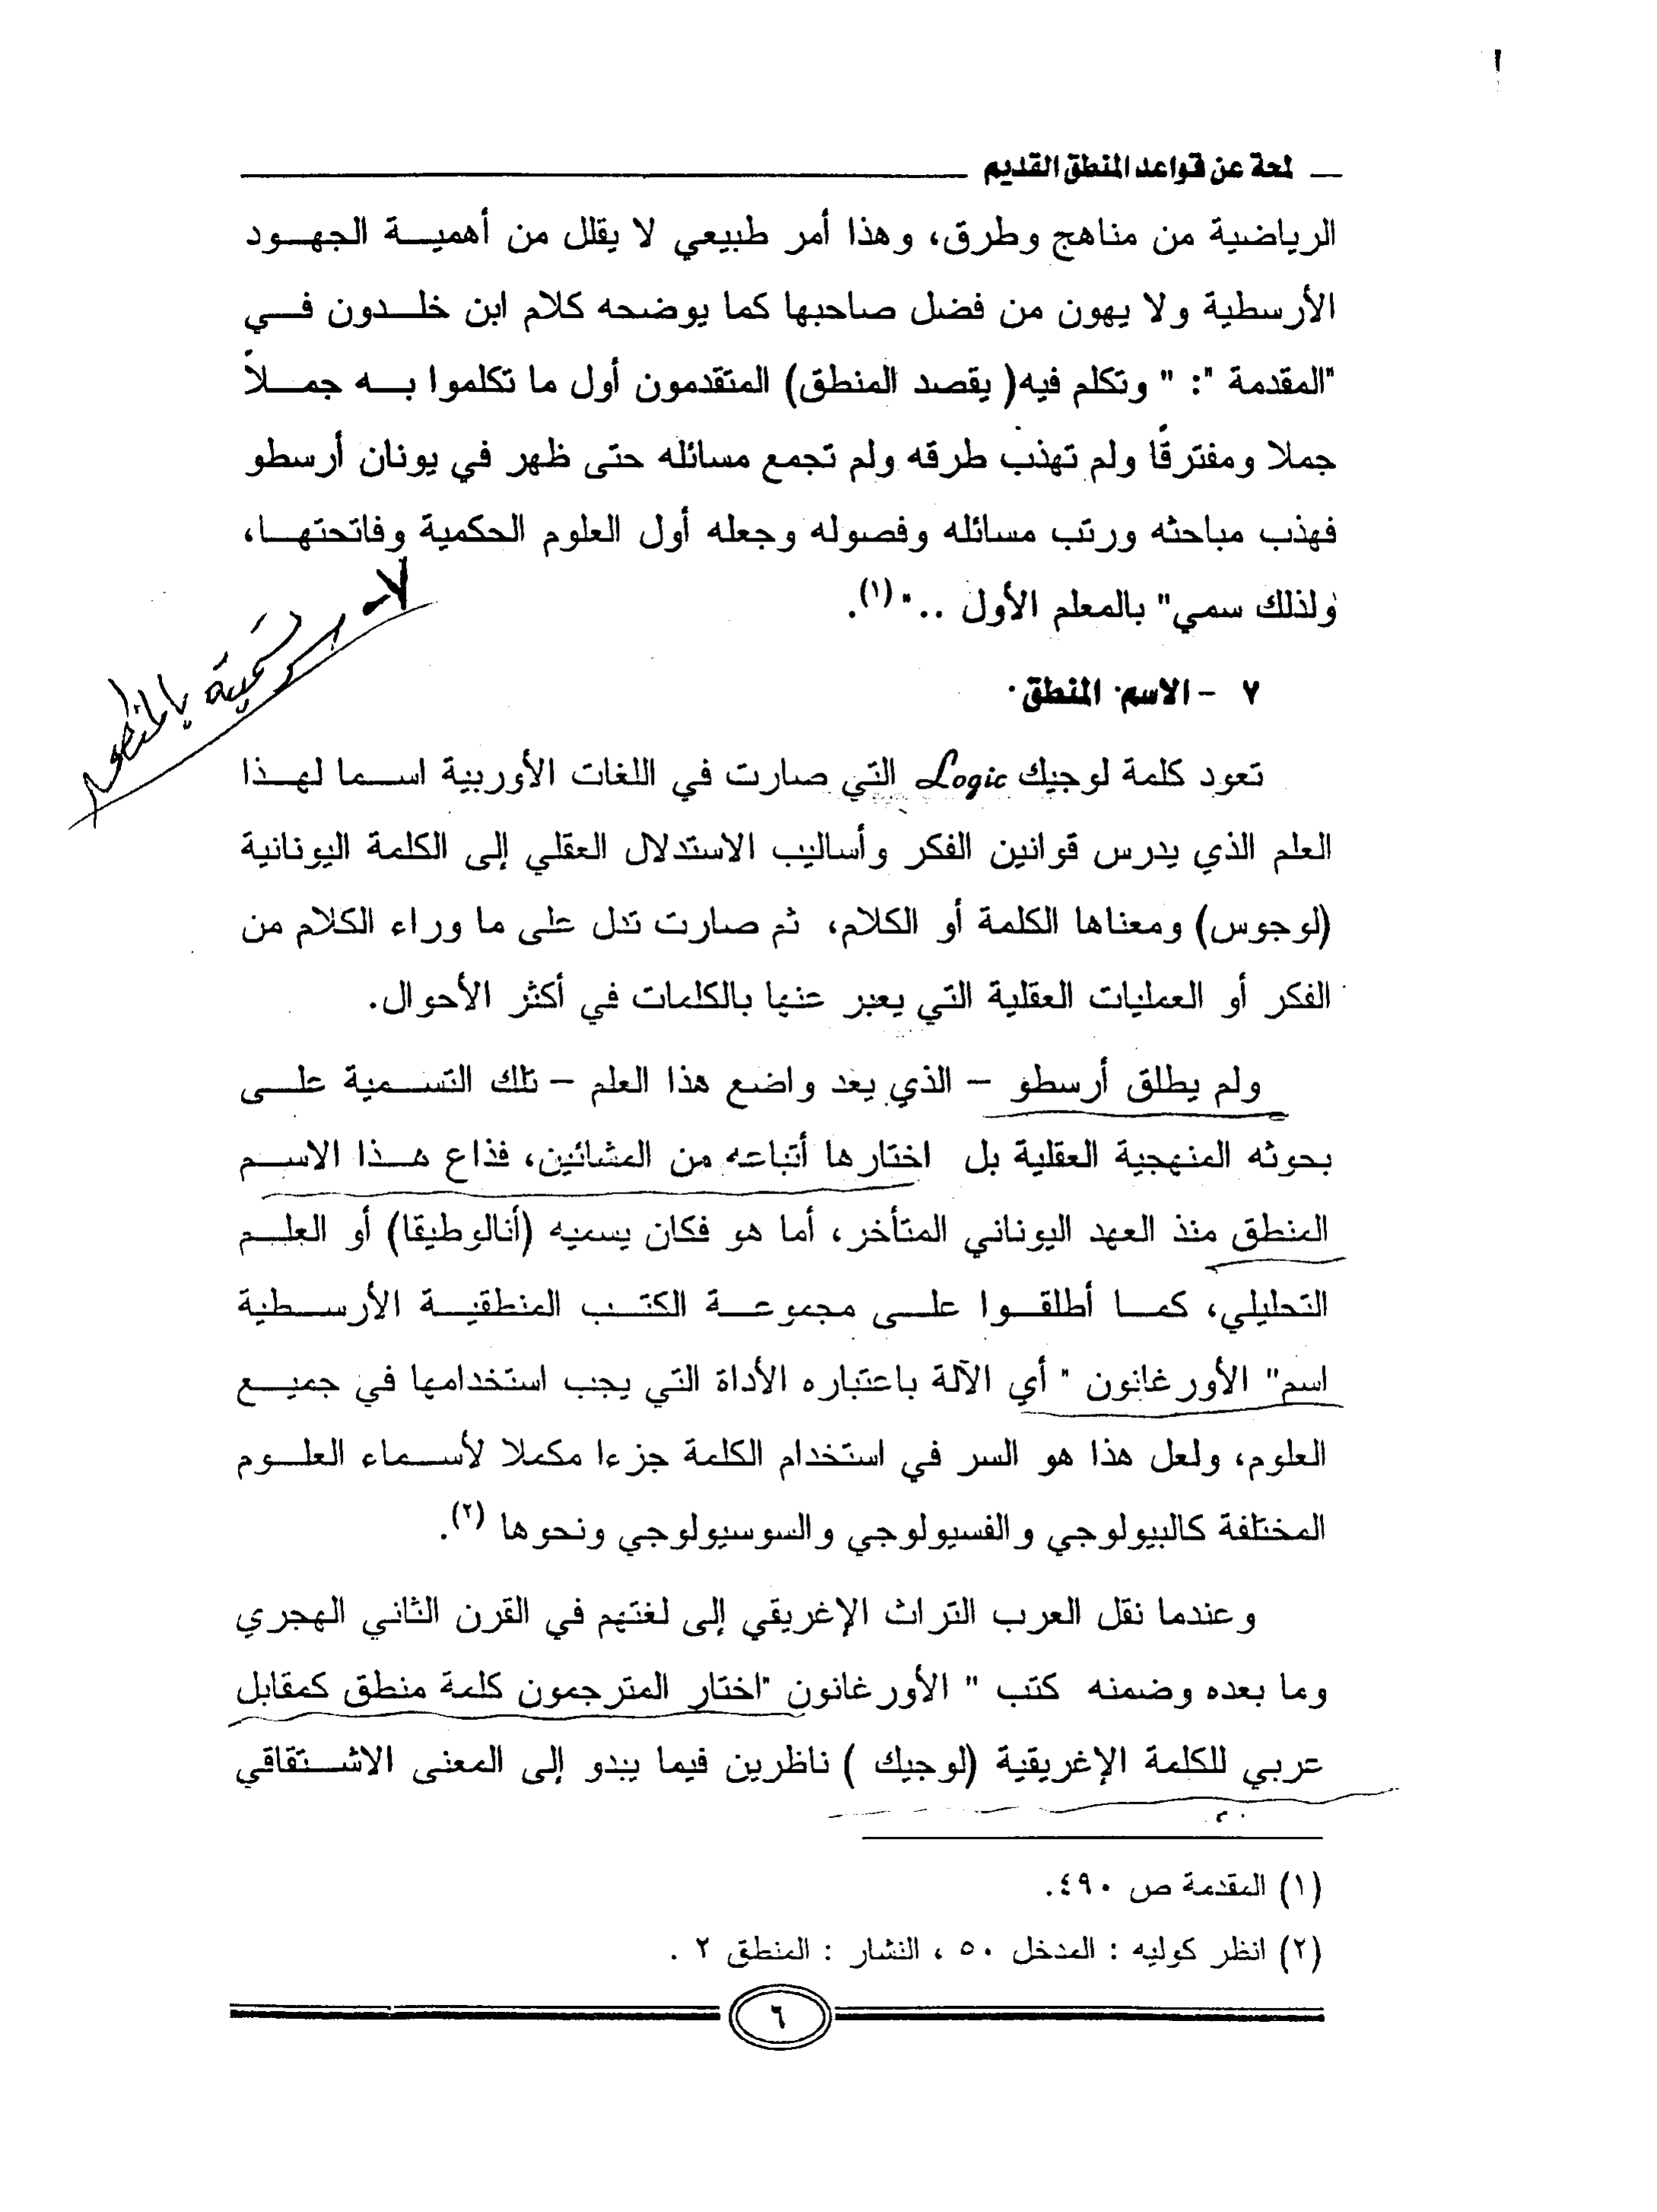 لمحة عن قواعد المنطق القديم
الرياضية من مناهج وطرق، وهذا أمر طبيعي لا يقلل من أهميـــة الجهـــود
الأرسطية ولا يهون من فضل صاحبها كما يوضحه كلام ابن خلـــدون فـــي
"المقدمة ": " وتكلم فيه( يقصد المنطق) المتقدمون أول ما تكلموا بـــه جمـــلاً
جملا ومفترقًا ولم تهذب طرقه ولم تجمع مسائله حتى ظهر في يونان أرسطو
فهذب مباحثه ورتب مسائله وفصوله وجعله أول العلوم الحكمية وفاتحتهـــا،
ولذلك سمي" بالمعلم الأول .. " (١).
تسمية بالمنطق
٧ - الاسم المنطق
تعود كلمة لوجيك Logic التي صارت في اللغات الأوربية اســـما لهـــذا
العلم الذي يدرس قوانين الفكر وأساليب الاستدلال العقلي إلى الكلمة اليونانية
(لوجوس) ومعناها الكلمة أو الكلام، ثم صارت تدل على ما وراء الكلام من
الفكر أو العمليات العقلية التي يعبر عنها بالكلمات في أكثر الأحوال.
ولم يطلق أرسطو – الذي يعد واضع هذا العلم – تلك التســـمية علـــى
بحوثه المنهجية العقلية بل اختارها أتباعه من المشائين، فذاع هـــذا الاســـم
المنطق منذ العهد اليوناني المتأخر، أما هو فكان يسميه (أنالوطيقا) أو العلـــم
التحليلي، كمـــا أطلقـــوا علـــى مجموعـــة الكتـــب المنطقيـــة الأرســـطية
اسم" الأورغانون " أي الآلة باعتباره الأداة التي يجب استخدامها في جميـــع
العلوم، ولعل هذا هو السر في استخدام الكلمة جزءا مكملا لأســـماء العلـــوم
المختلفة كالبيولوجي والفسيولوجي والسوسيولوجي ونحوها (٢).
وعندما نقل العرب التراث الإغريقي إلى لغتهم في القرن الثاني الهجري
وما بعده وضمنه كتب " الأورغانون "اختار المترجمون كلمة منطق كمقابل
عربي للكلمة الإغريقية (لوجيك ) ناظرين فيما يبدو إلى المعنى الاشـــتقاقي
(١) المقدمة ص ٤٩٠.
(٢) انظر كوليه : المدخل ٥٠ ، النشار : المنطق ٢ .
٦